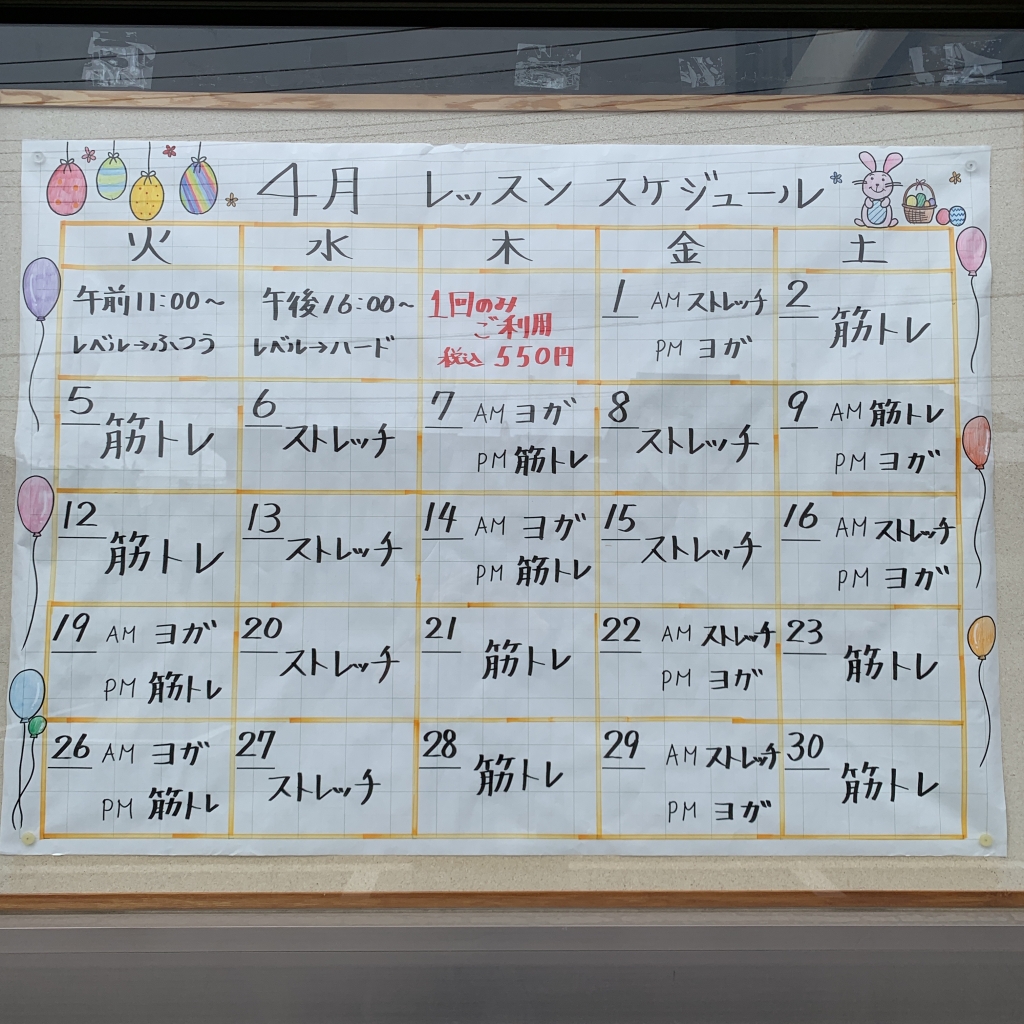 4月 レッスン スケジュール
火 水 木 金 土
午前11:00～
レベル→ふつう
午後16:00～
レベル→ハード
1回のみ
ご利用
税込 550円
1 AM ストレッチ
PM ヨガ
2 筋トレ
5 筋トレ
6 ストレッチ
7 AM ヨガ
PM 筋トレ
8 ストレッチ
9 AM 筋トレ
PM ヨガ
12 筋トレ
13 ストレッチ
14 AM ヨガ
PM 筋トレ
15 ストレッチ
16 AM ストレッチ
PM ヨガ
19 AM ヨガ
PM 筋トレ
20 ストレッチ
21 筋トレ
22 AM ストレッチ
PM ヨガ
23 筋トレ
26 AM ヨガ
PM 筋トレ
27 ストレッチ
28 筋トレ
29 AM ストレッチ
PM ヨガ
30 筋トレ